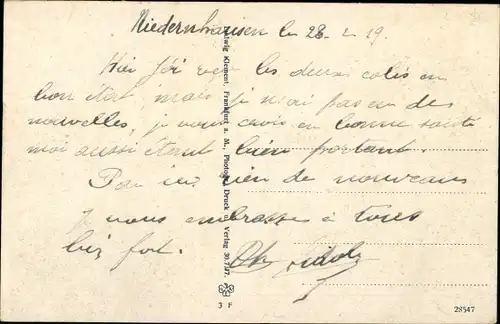 Niedernhausen le 28 2 19
Hier j'ai reçu les deux colis en
bon état mais je n'ai pas eu des
nouvelles, je vous crois en bonne santé
moi aussi étant bien portant.
Pas rien de nouveaux
je vous embrasse à tous
biz fort.
Ludwig Klement, Frankfurt a. M., Photogr. Druck u. Verlag 30.7.17.
3 F
28547